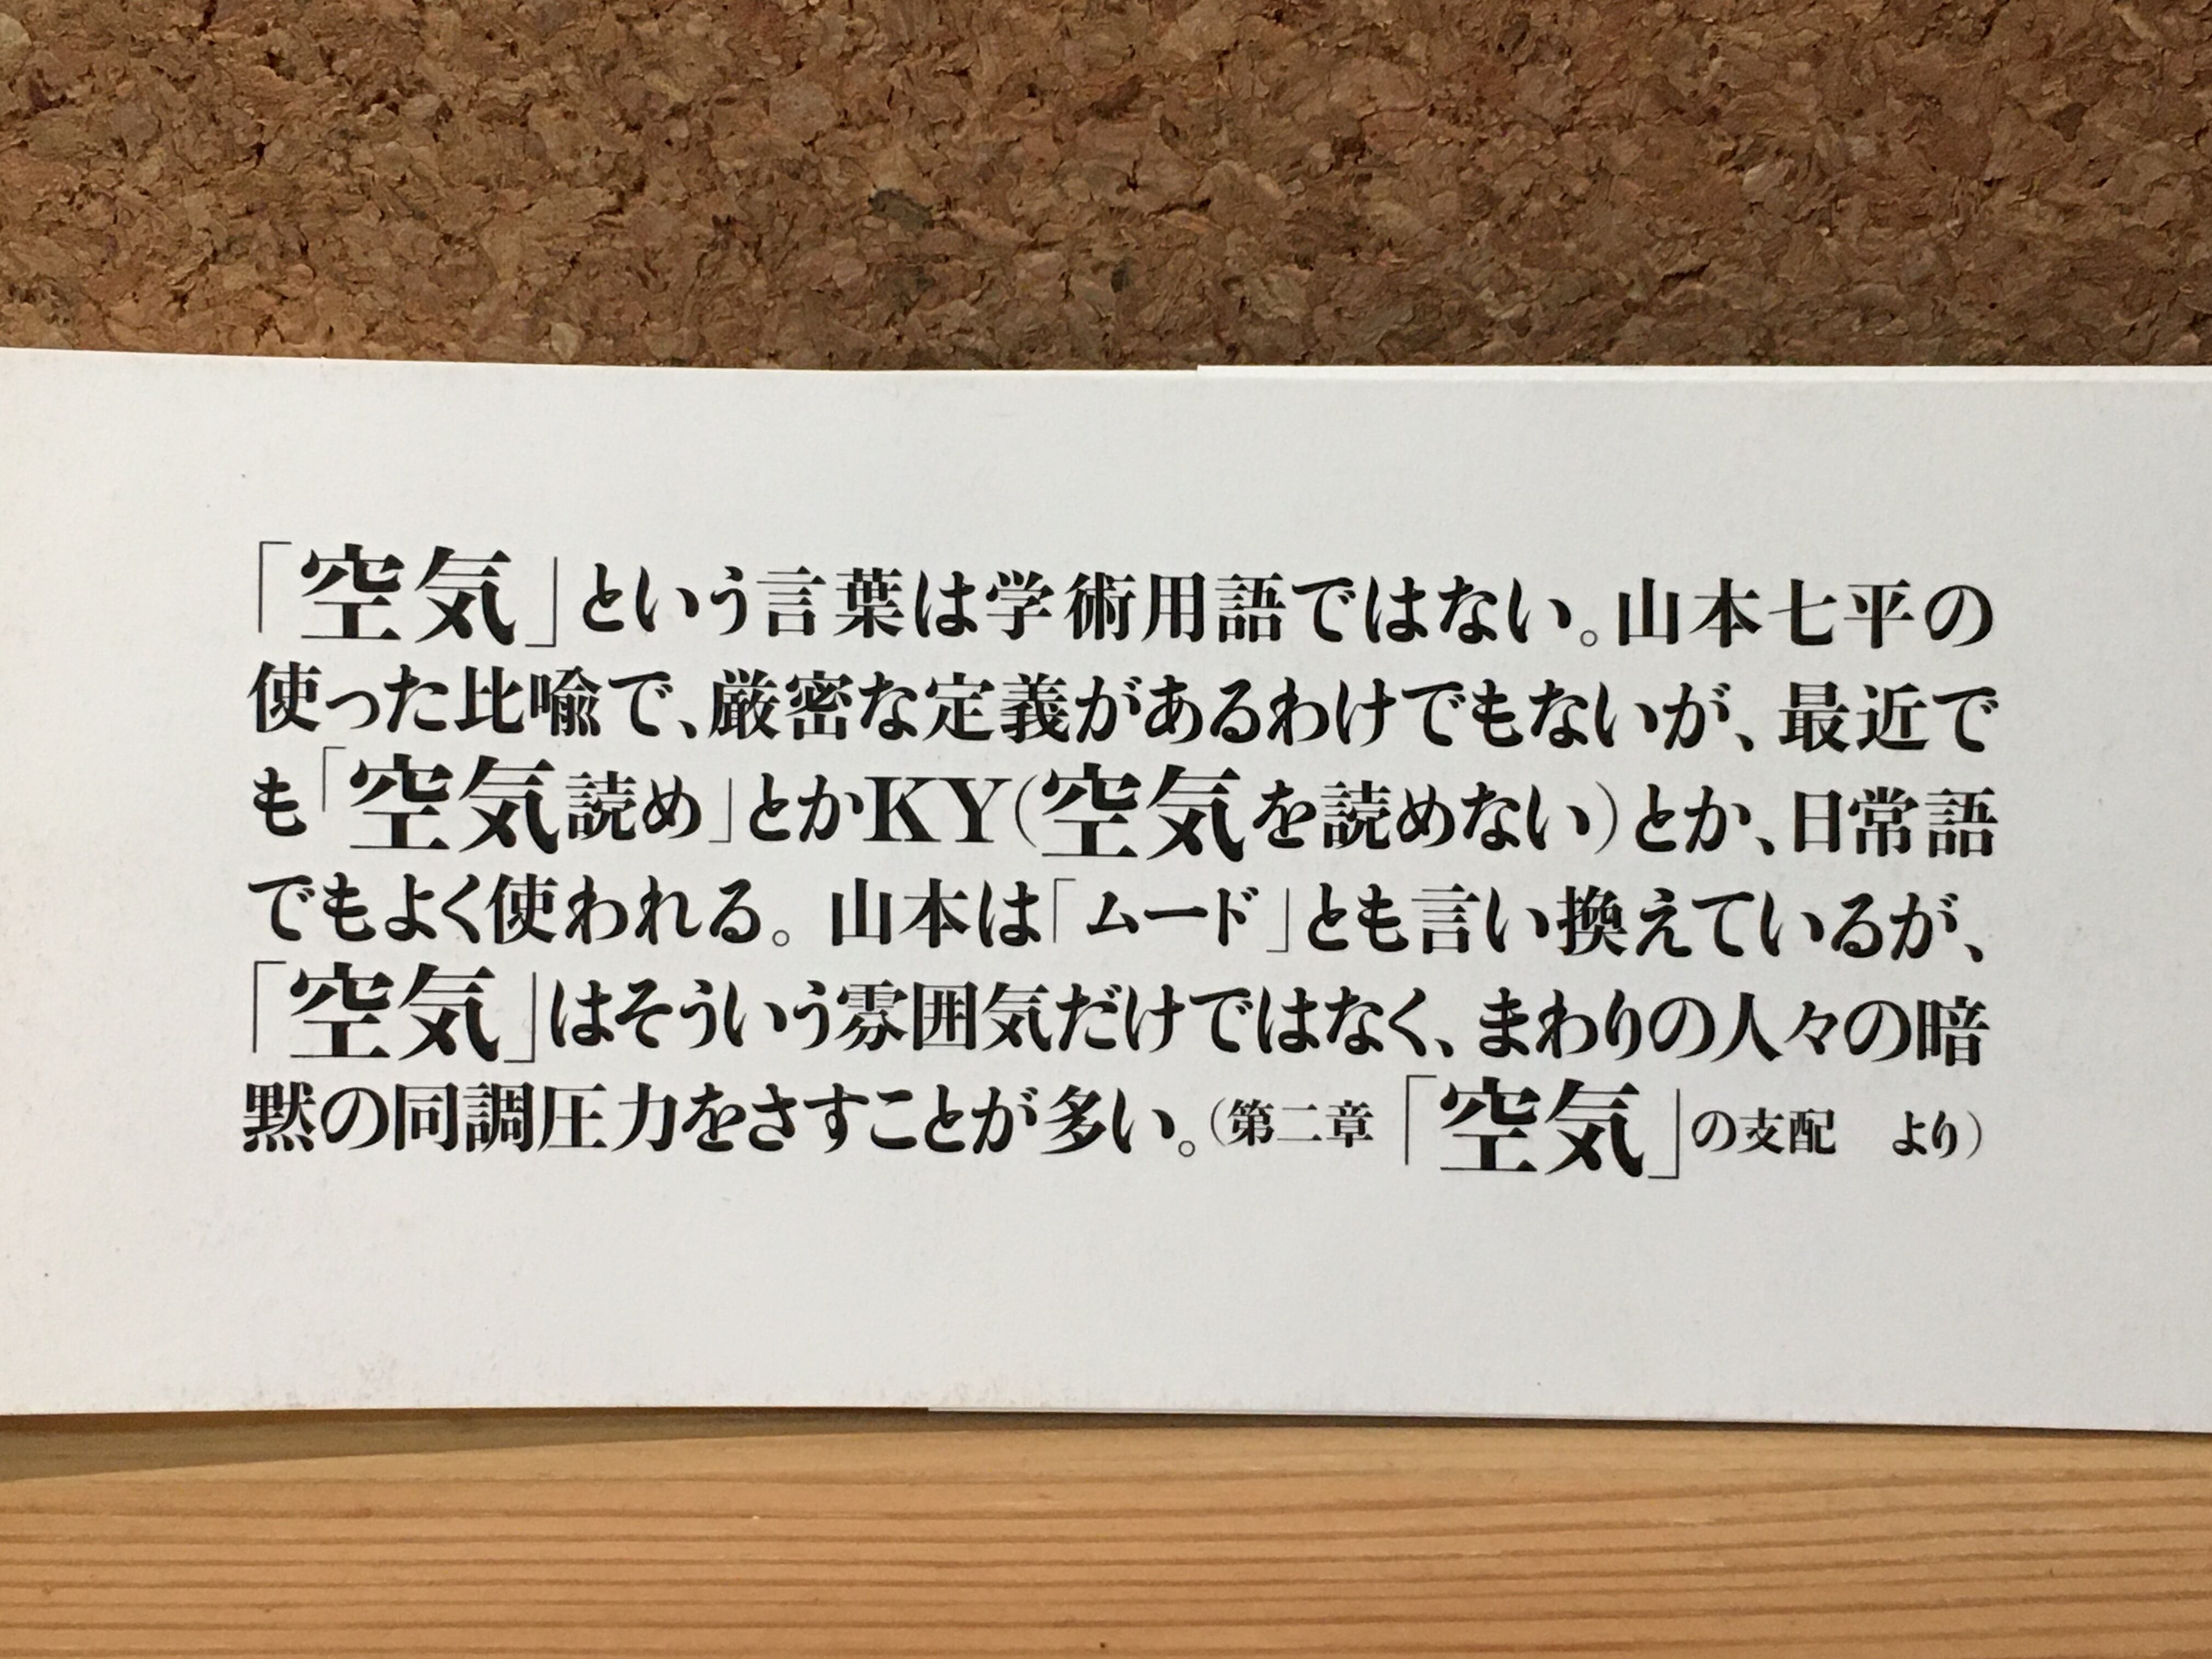 「空気」という言葉は学術用語ではない。山本七平の
使った比喩で、厳密な定義があるわけでもないが、最近で
も「空気読め」とかKY(空気を読めない)とか、日常語
でもよく使われる。山本は「ムード」とも言い換えているが、
「空気」はそういう雰囲気だけではなく、まわりの人々の暗
黙の同調圧力をさすことが多い。(第二章「空気」の支配　より)